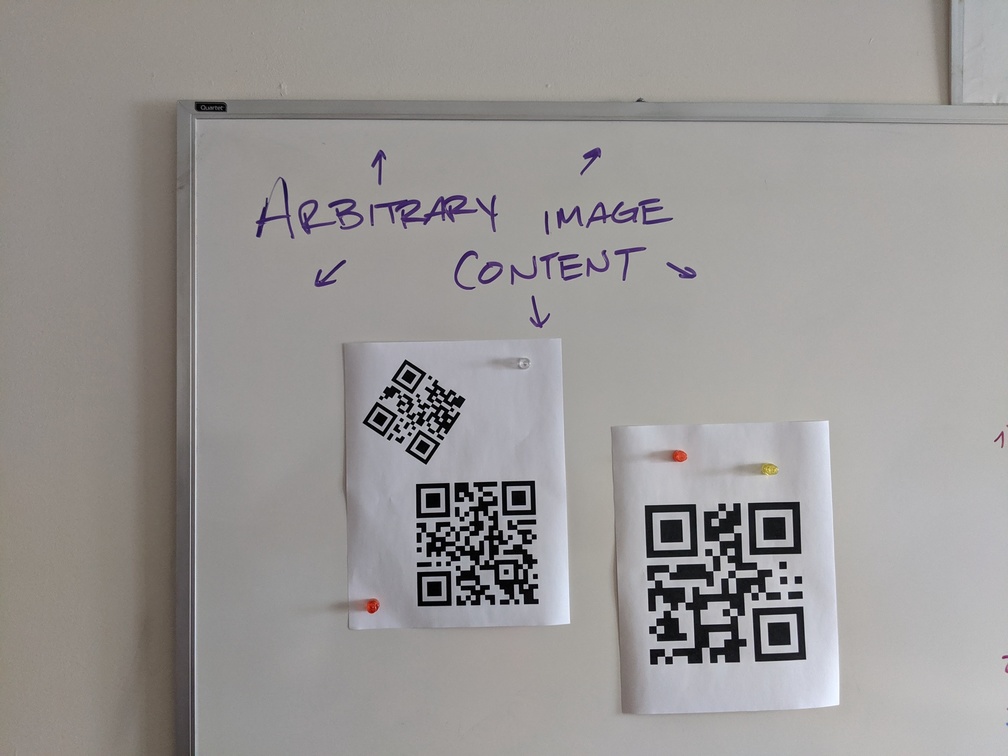 Quartet
ARBITRARY IMAGE
CONTENT